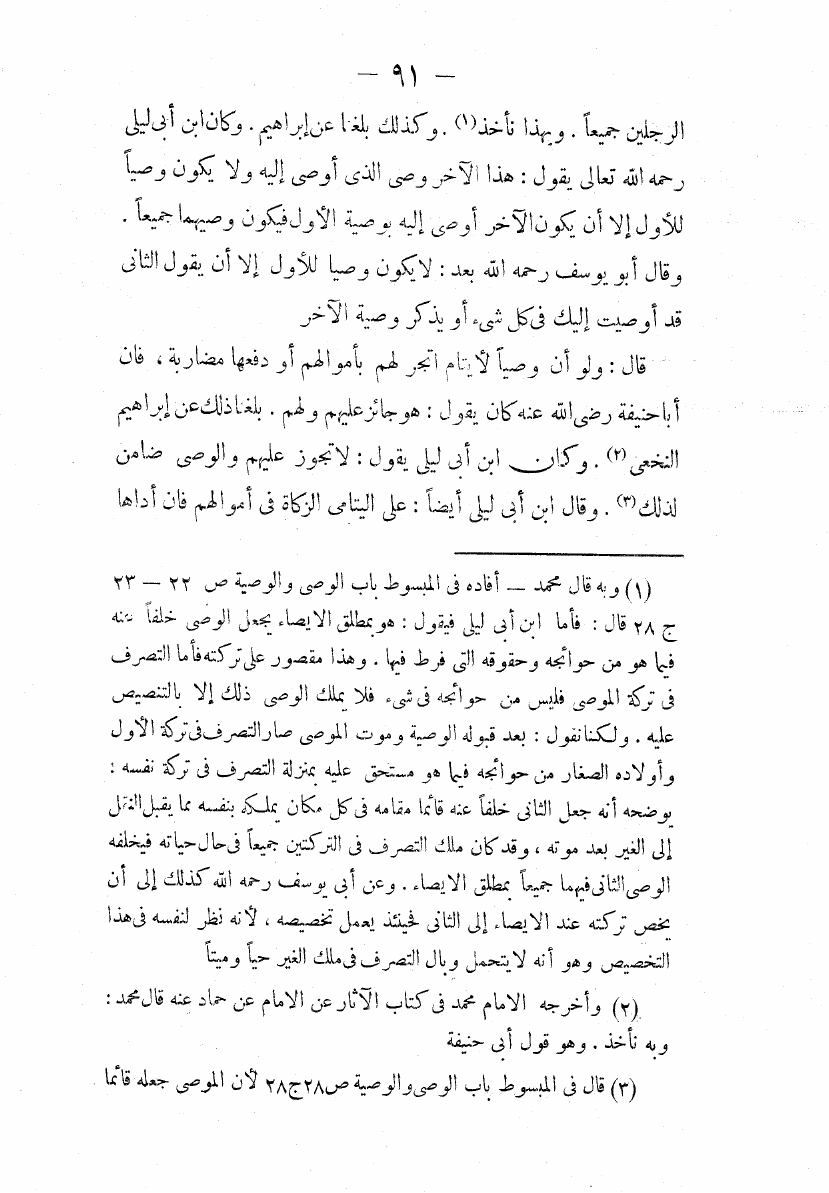 — ٩١ —
الرجلين جميعاً . وبهذا نأخذ(١) . وكذلك بلغنا عن إبراهيم . وكان ابن أبى ليلى
رحمه الله تعالى يقول : هذا الآخر وصى الذى أوصى إليه ولا يكون وصياً
للأول إلا أن يكون الآخر أوصى إليه بوصية الأول فيكون وصيهما جميعاً .
وقال أبو يوسف رحمه الله بعد : لا يكون وصيا للأول إلا أن يقول الثانى
قد أوصيت إليك فى كل شىء أو يذكر وصية الآخر
قال : ولو أن وصياً لأيتام اتجر لهم بأموالهم أو دفعها مضاربة ، فان
أبا حنيفة رضى الله عنه كان يقول : هو جائز عليهم ولهم . بلغنا ذلك عن إبراهيم
النخعى(٢) . وكان ابن أبى ليلى يقول : لا تجوز عليهم والوصى ضامن
لذلك(٣) . وقال ابن أبى ليلى أيضاً : على اليتامى الزكاة فى أموالهم فان أداها
(١) وبه قال محمد — أفاده فى المبسوط باب الوصى والوصية ص ٢٢ — ٢٣
ج ٢٨ قال : فأما ابن أبى ليلى فيقول : هو بمطلق الايصاء يجعل الوصى خلفاً عنه
فيما هو من حوائجه وحقوقه التى فرط فيها . وهذا مقصور على تركته فأما التصرف
فى تركة الموصى فليس من حوائجه فى شىء فلا يملك الوصى ذلك إلا بالتنصيص
عليه . ولكنا نقول : بعد قبوله الوصية وموت الموصى صار التصرف فى تركة الأول
وأولاده الصغار من حوائجه فيما هو مستحق عليه بمنزلة التصرف فى تركة نفسه :
يوضحه أنه جعل الثانى خلفاً عنه قائما مقامه فى كل مكان يملكه بنفسه مما يقبل النقل
إلى الغير بعد موته ، وقد كان ملك التصرف فى التركتين جميعاً فى حال حياته فيخلفه
الوصى الثانى فيهما جميعاً بمطلق الايصاء . وعن أبى يوسف رحمه الله كذلك إلى أن
يخص تركته عند الايصاء إلى الثانى فحينئذ يعمل تخصيصه ، لأنه نظر لنفسه فى هذا
التخصيص وهو أنه لا يتحمل وبال التصرف فى ملك الغير حياً وميتاً
(٢) وأخرجه الامام محمد فى كتاب الآثار عن الامام عن حماد عنه قال محمد :
وبه نأخذ . وهو قول أبى حنيفة
(٣) قال فى المبسوط باب الوصى والوصية ص٢٨ج٢٨ لأن الموصى جعله قائما